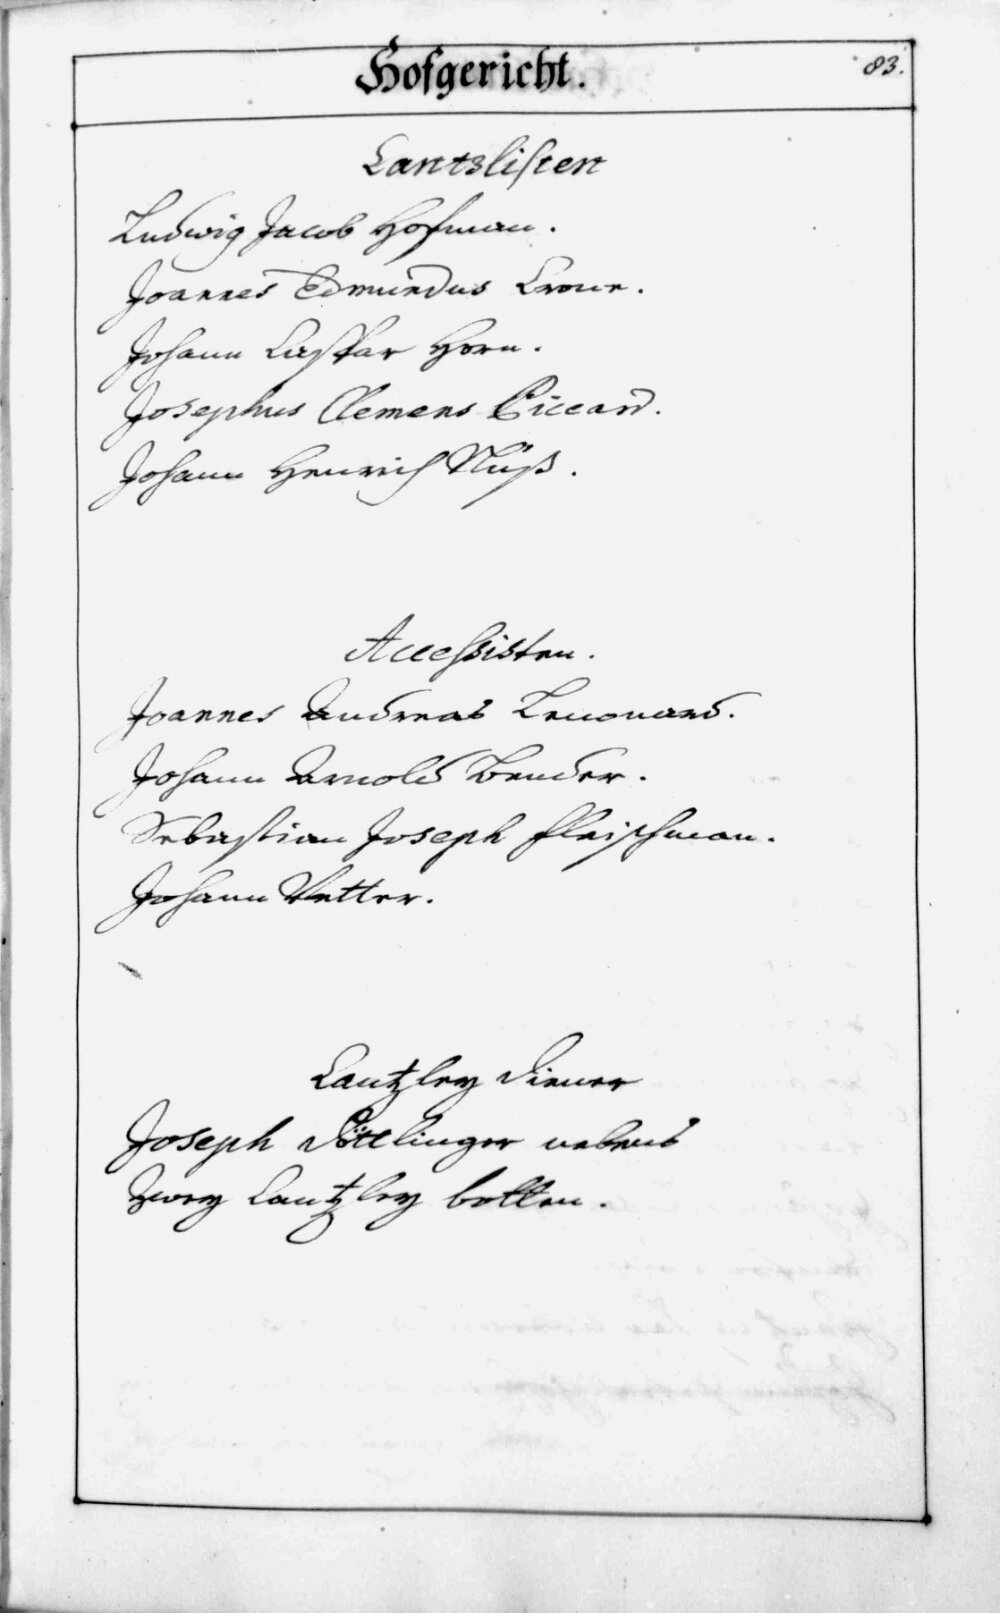 Hofgericht.
83.
Cantzlisten
Ludwig Jacob Hofman.
Joannes Edmundus Crone.
Johann Caspar Horn.
Josephus Clemens Piccard.
Johann Henrich Nüß.
Accessisten.
Joannes Andreas Leuonard.
Johann Arnold Bender.
Sebastian Joseph Fleischman.
Johann Vetter.
Cantzley Diener
Joseph Döttlinger nebens
zwey Cantzley botten.